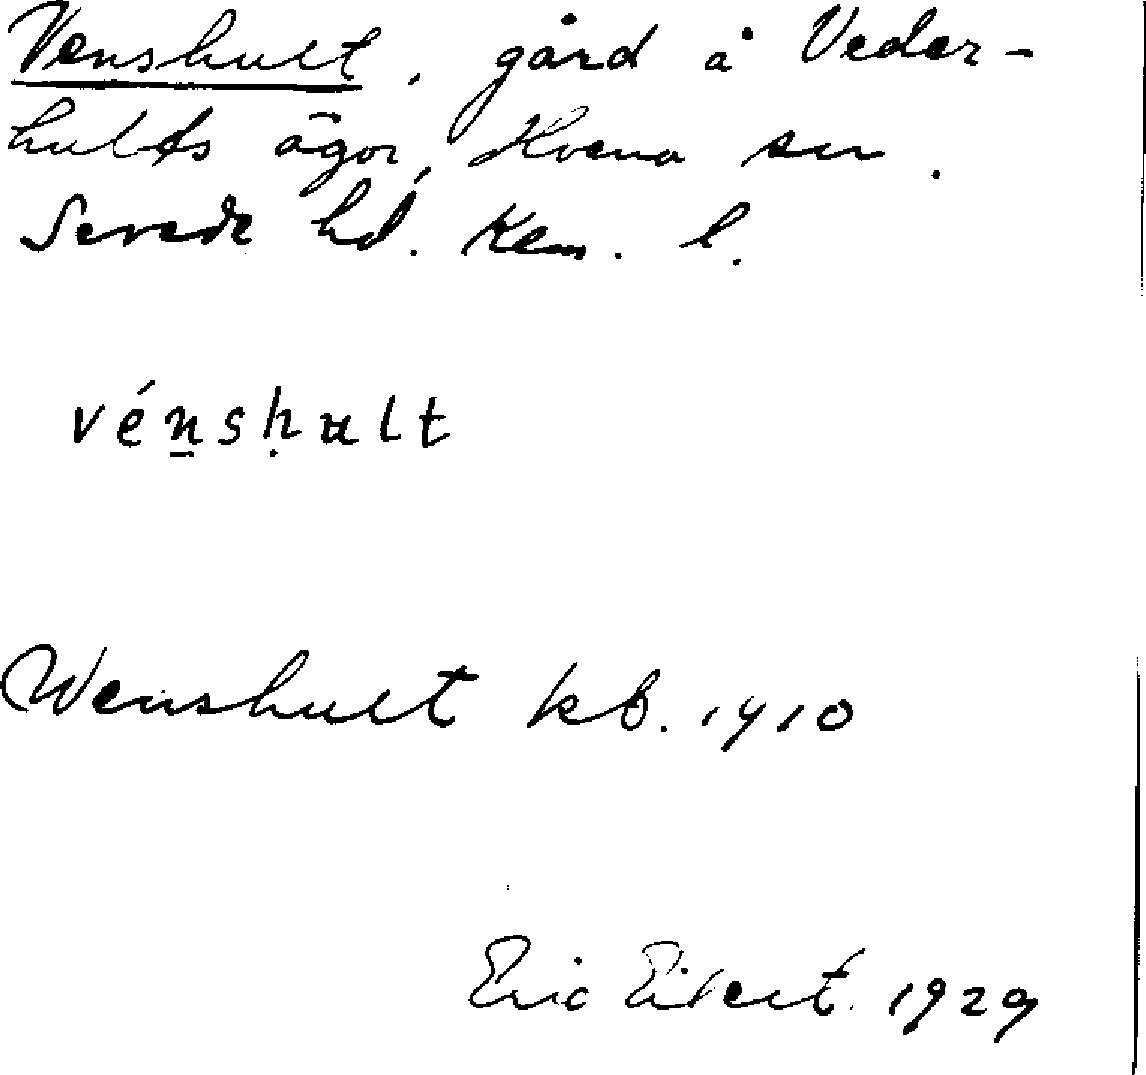 Venshult, gård å Veder-
hults ägor, Hvena sn.
Sevede hd. Kem. l.
vénsḥult
Wenshult kb. 1910
Eric Eikert. 1929